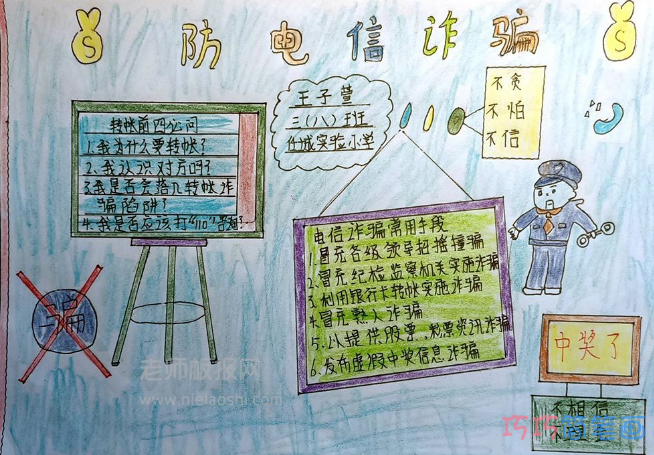 防电信诈骗
王子萱
三(八)班
任城实验小学
不贪
不怕
不信
转帐前四必问
1.我为什么要转帐?
2.我认识对方吗?
3.我是否会落入转帐诈
骗陷阱?
4.我是否应该打"110"咨询?
电信诈骗常用手段
1.冒充各级领导招摇撞骗
2.冒充纪检监察机关实施诈骗
3.利用银行卡转帐实施诈骗
4.冒充熟人诈骗
5.以提供股票、彩票资讯诈骗
6.发布虚假中奖信息诈骗
中奖了
不相信
老师板报网
www.nielaoshi.com